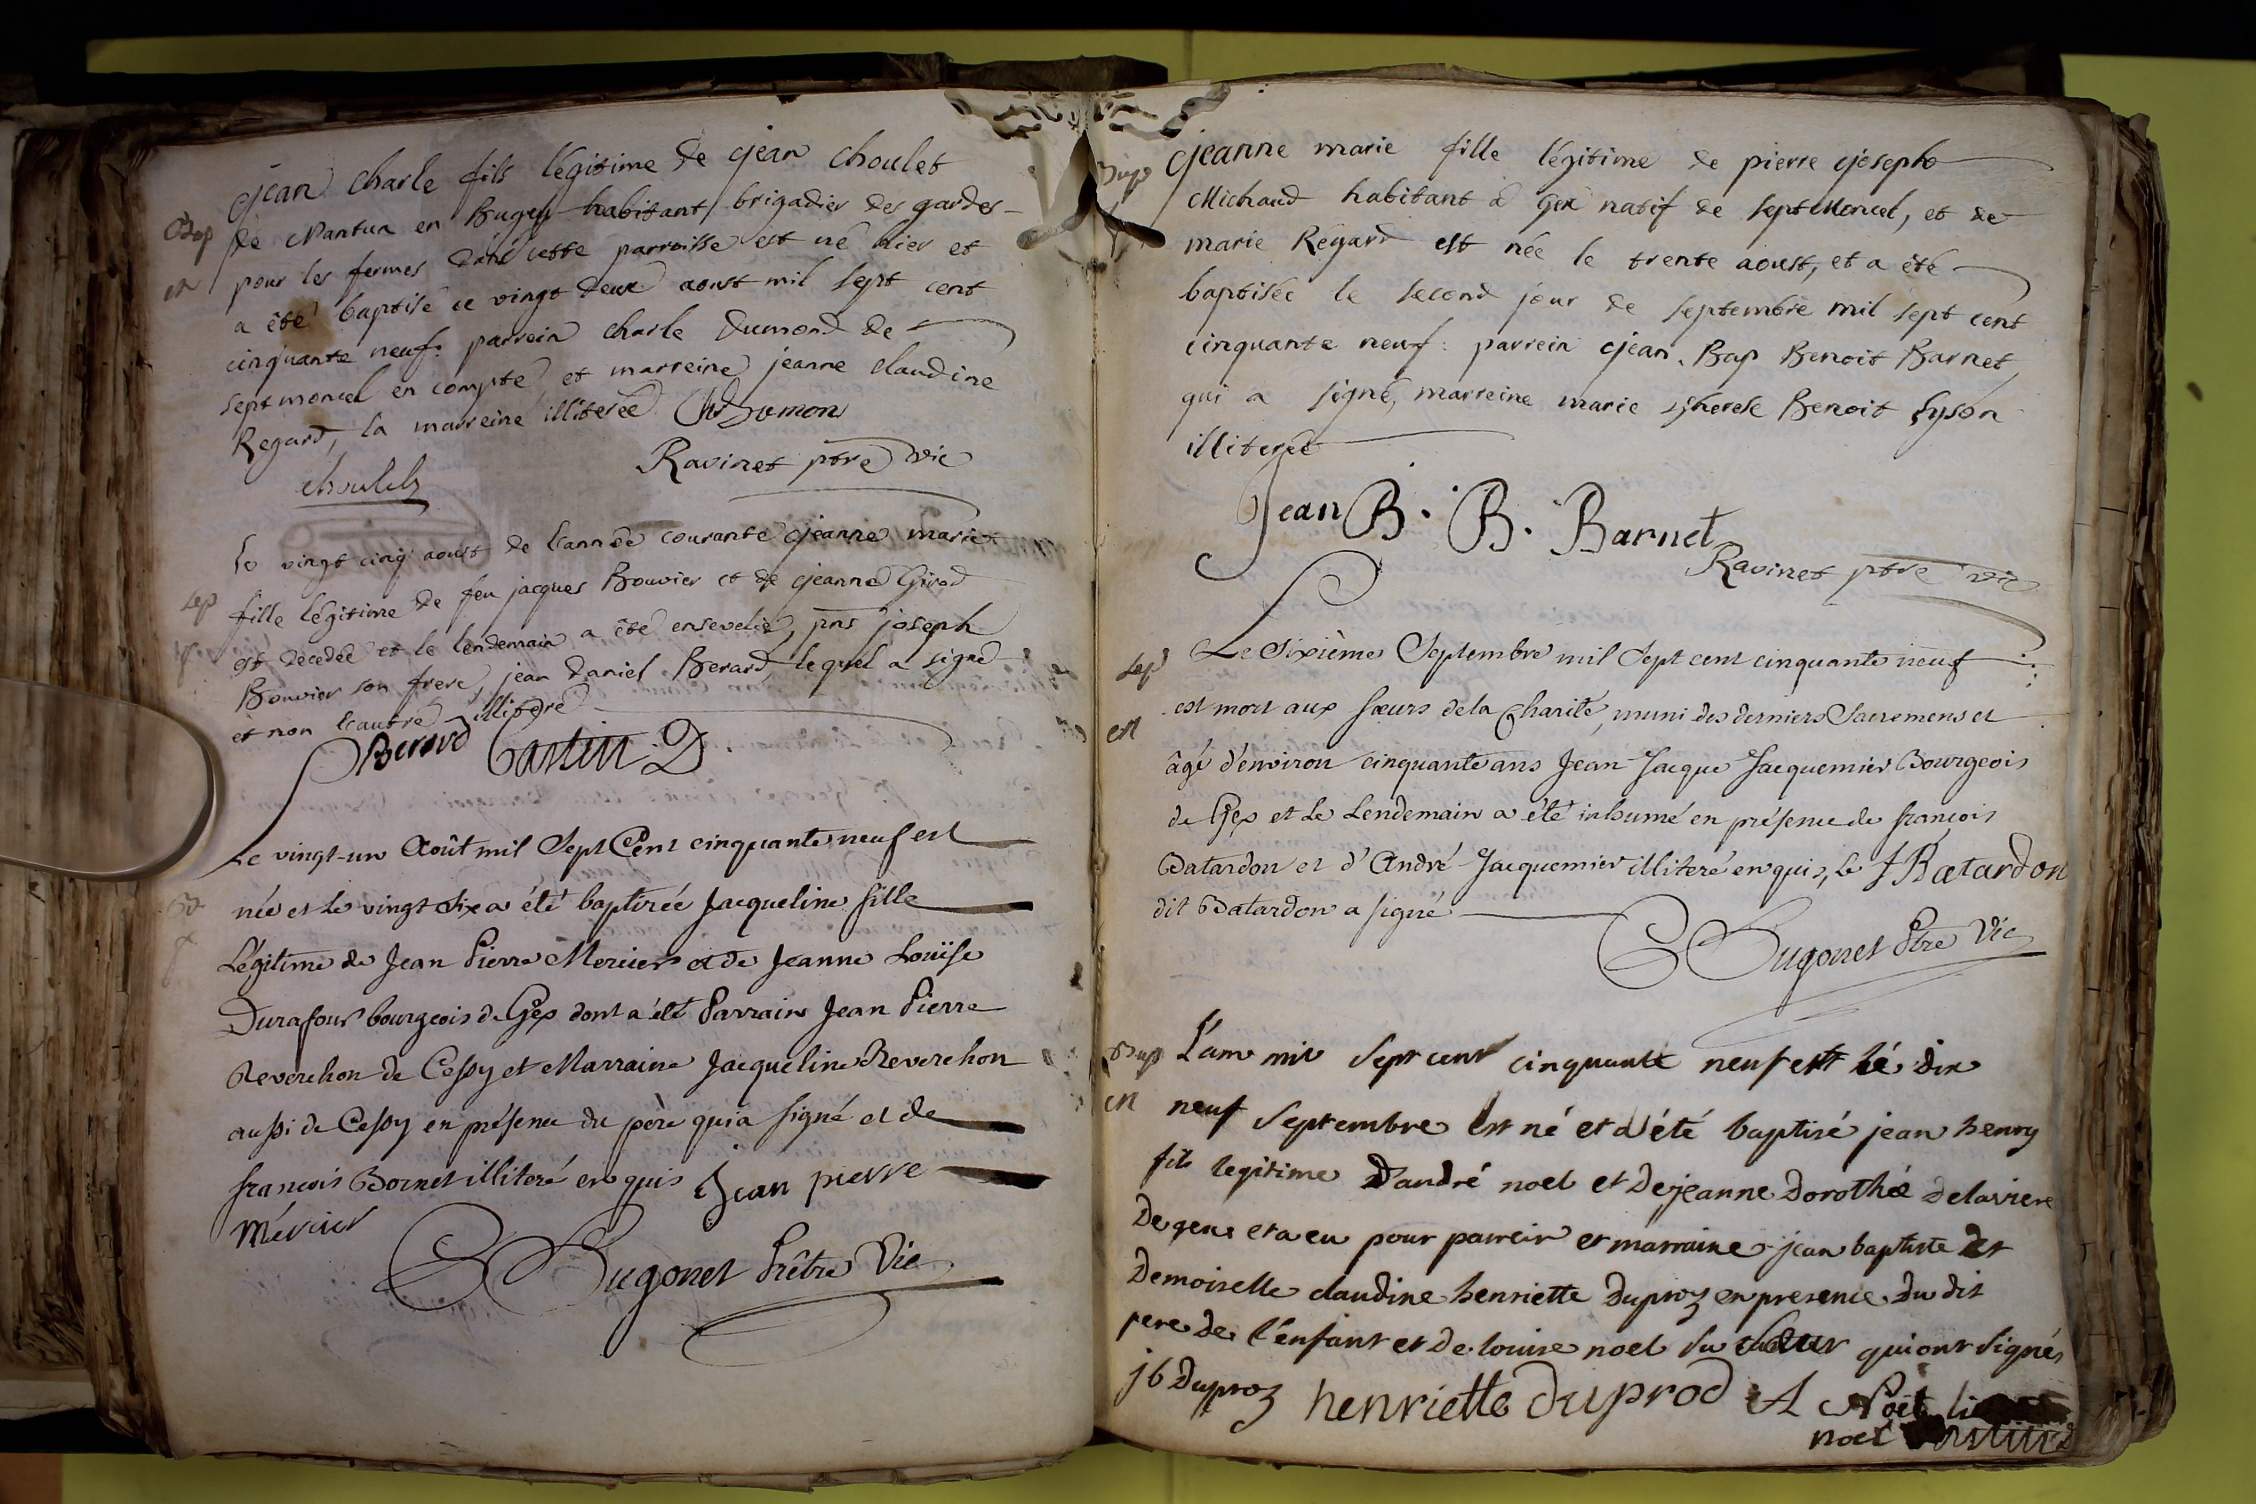 Jean Charle fils légitime de Jean Choulet
Bap de Nantua en Bugey habitant brigadier des gardes
en pour les fermes dans cette parroisse est né hier et
a été baptisé ce vingt deux aoust mil sept cent
cinquante neuf: parrein Charle Dumond de
Septmoncel en compté et marreine jeanne Claudine
Regard, la marreine illiterée Ch Dumon
Choulet
Ravinet ptre vic
Le vingt cinq aoust de l'année courante Jeanne marie
Sep fille légitime de feu jacques Bouvier et de Jeanne Girod
est decedée et le lendemain a été ensevelie, pns joseph
Bouvier son frere, jean daniel Berard, lequel a signé
et non l'autre illiteré
Berard Castin D
Le vingt-un Août mil Sept Cent cinquante neuf est
née et le vingt Six a été baptisée Jacqueline fille
Légitime de Jean Pierre Mercier et de Jeanne Louïse
Durafour bourgeois de Gex dont a été Parrain Jean Pierre
Reverchon de Cessy et Marraine Jacqueline Reverchon
aussi de Cessy en présence du père qui a signé et de
francois Bornet illiteré enquis Jean pierre
Mércier
Sugonet Prêtre Vic
Bap Jeanne marie fille légitime de pierre Joseph
Michaud habitant à Gex natif de Septmoncel, et de
marie Régard est née le trente aoust, et a été
baptisée le second jour de septembre mil sept cent
cinquante neuf: parrein Jean Bap Benoit Barnet
qui a signé, marreine marie Therese Benoit Lyson
illiterée
Jean B. B. Barnet
Ravinet ptre vic
Sep Le Sixième Septembre mil Sept cent cinquante neuf
en est mort aux Sœurs de la Charité, muni des derniers Sacremens et
âgé d'environ cinquante ans Jean Jacque Jacquemier Bourgeois
de Gex et Le Lendemain a été inhumé en présence de francois
Batardon et d'André Jacquemier illiteré enquis, Le J Batardon
dit Batardon a signé
Sugonet Ptre Vic
Bap L'an mil Sept cent cinquante neuf est le dix
en neuf Septembre Est né et a été baptisé jean henry
fils legitime D'andré noel et De jeanne Dorothée Delaviere
De gex et a eu pour parrein et marraine jean baptiste et
Demoiselle claudine henriette Duproz en presence Du dit
pere de l'enfant et de louise noel Sa Sœur qui ont Signés
jb Duproz henriette Duprod A Noel
noel Castin D